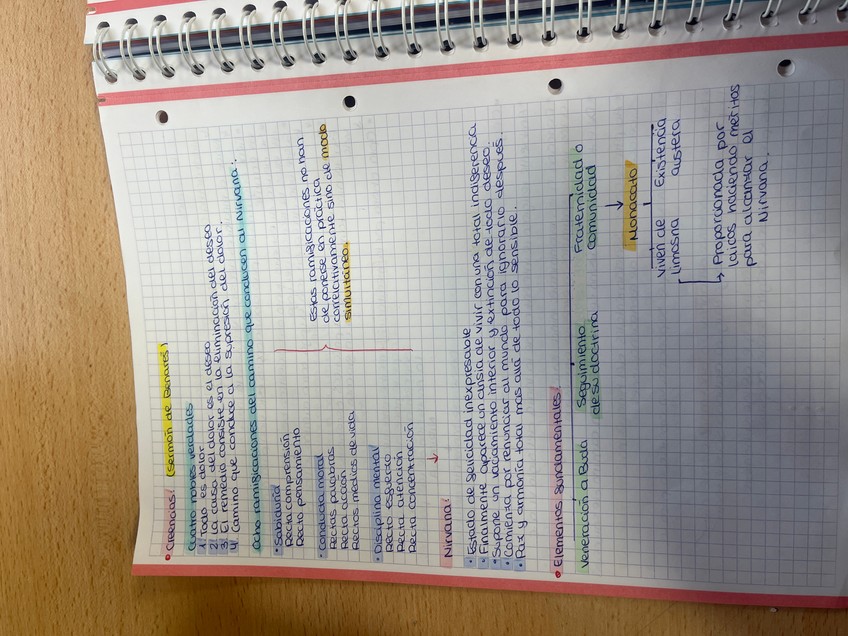 • Creencias: (Sermón de Benarés)
Cuatro nobles verdades
1 Todo es dolor
2 La causa del dolor es el deseo
3 El remedio consiste en la eliminación del deseo
4 Camino que conduce a la supresión del dolor.
Ocho ramificaciones del camino que conducen al Nirvana:
• Sabiduría
Recta comprensión
Recto pensamiento
• Conducta moral
Rectas palabras
Recta acción
Rectos medios de vida
• Disciplina mental
Recto esfuerzo
Recta atención
Recta concentración
Estas ramificaciones no han
de ponerse en práctica
correlativamente sino de modo
simultáneo.
Nirvana:
• Estado de felicidad inexpresable
• Finalmente aparece un ansia de vivir con una total indiferencia
• Supone un vaciamiento interior y extinción de todo deseo.
• Comienza por renunciar al mundo para ignorarlo después.
• Paz y armonía total más allá de todo lo sensible.
• Elementos fundamentales:
Veneración a Buda
Seguimiento
de su doctrina
Fraternidad o
comunidad
↓
Monacato
Viven de
limosna
Existencia
austera
↳ Proporcionada por
laicos haciendo méritos
para alcanzar el
Nirvana.